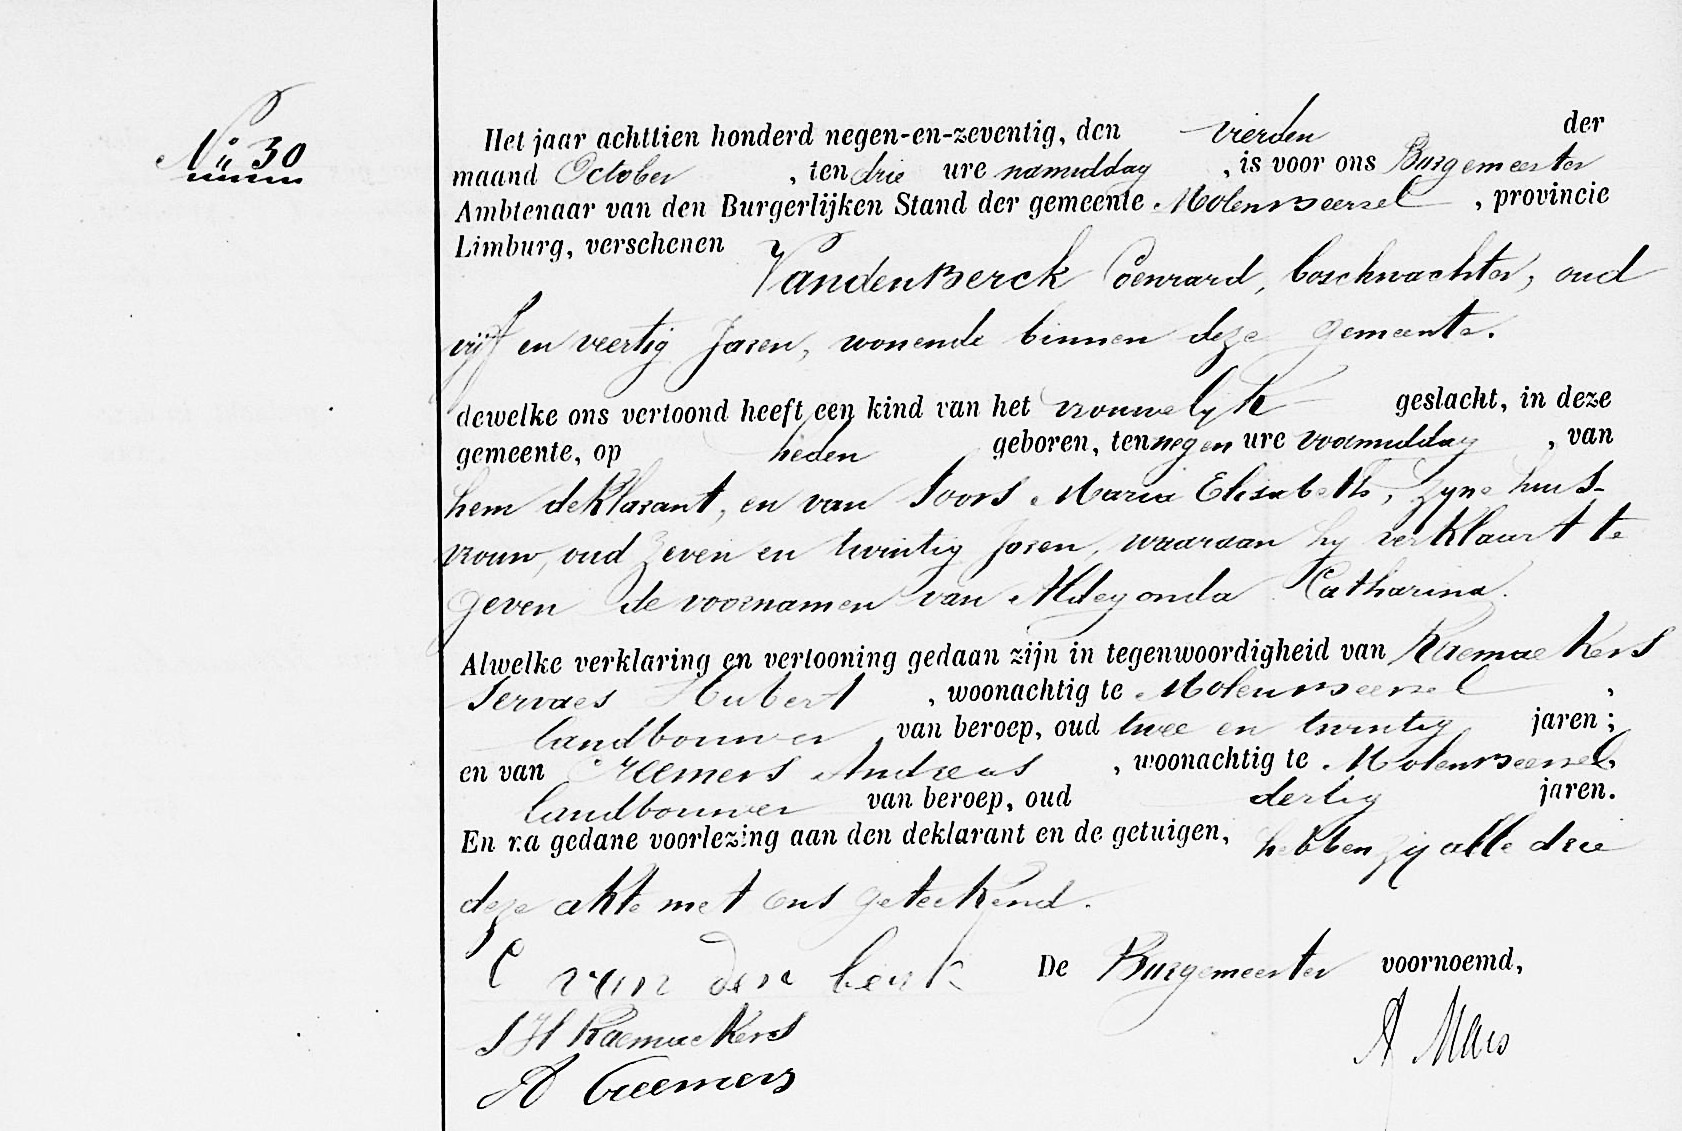 No 30
Het jaar achttien honderd negen-en-zeventig, den vierden der
maand October, ten drie ure namiddag, is voor ons Burgemeester
Ambtenaar van den Burgerlijken Stand der gemeente Molenbeersel, provincie
Limburg, verschenen
VandenBerck Coenrard, boschwachter, oud
vijf en veertig Jaren, wonende binnen deze gemeente.
dewelke ons vertoond heeft een kind van het vrouwelijk geslacht, in deze
gemeente, op heden geboren, ten negen ure voormiddag, van
hem deklarant, en van Soors Maria Elisabeth, zyne huis-
vrouw, oud zeven en twintig Jaren, waaraan hy verklaart te
geven de voornamen van Aldegonda Catharina.
Alwelke verklaring en vertooning gedaan zijn in tegenwoordigheid van Raemaekers
Servaes Hubert, woonachtig te Molenbeersel,
landbouwer, van beroep, oud twee en twintig jaren;
en van Creemers Andreas, woonachtig te Molenbeersel,
landbouwer van beroep, oud dertig jaren.
En na gedane voorlezing aan den deklarant en de getuigen, hebben zy alle drie
deze akte met ons geteekend.
C van den berk De Burgemeester voornoemd,
S H Raemaekers
A Maes
A Creemers